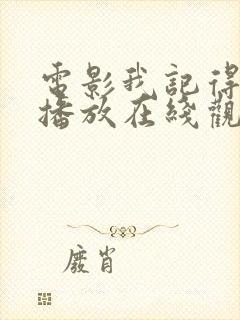 電影我記得
播放在綫觀
廢肖